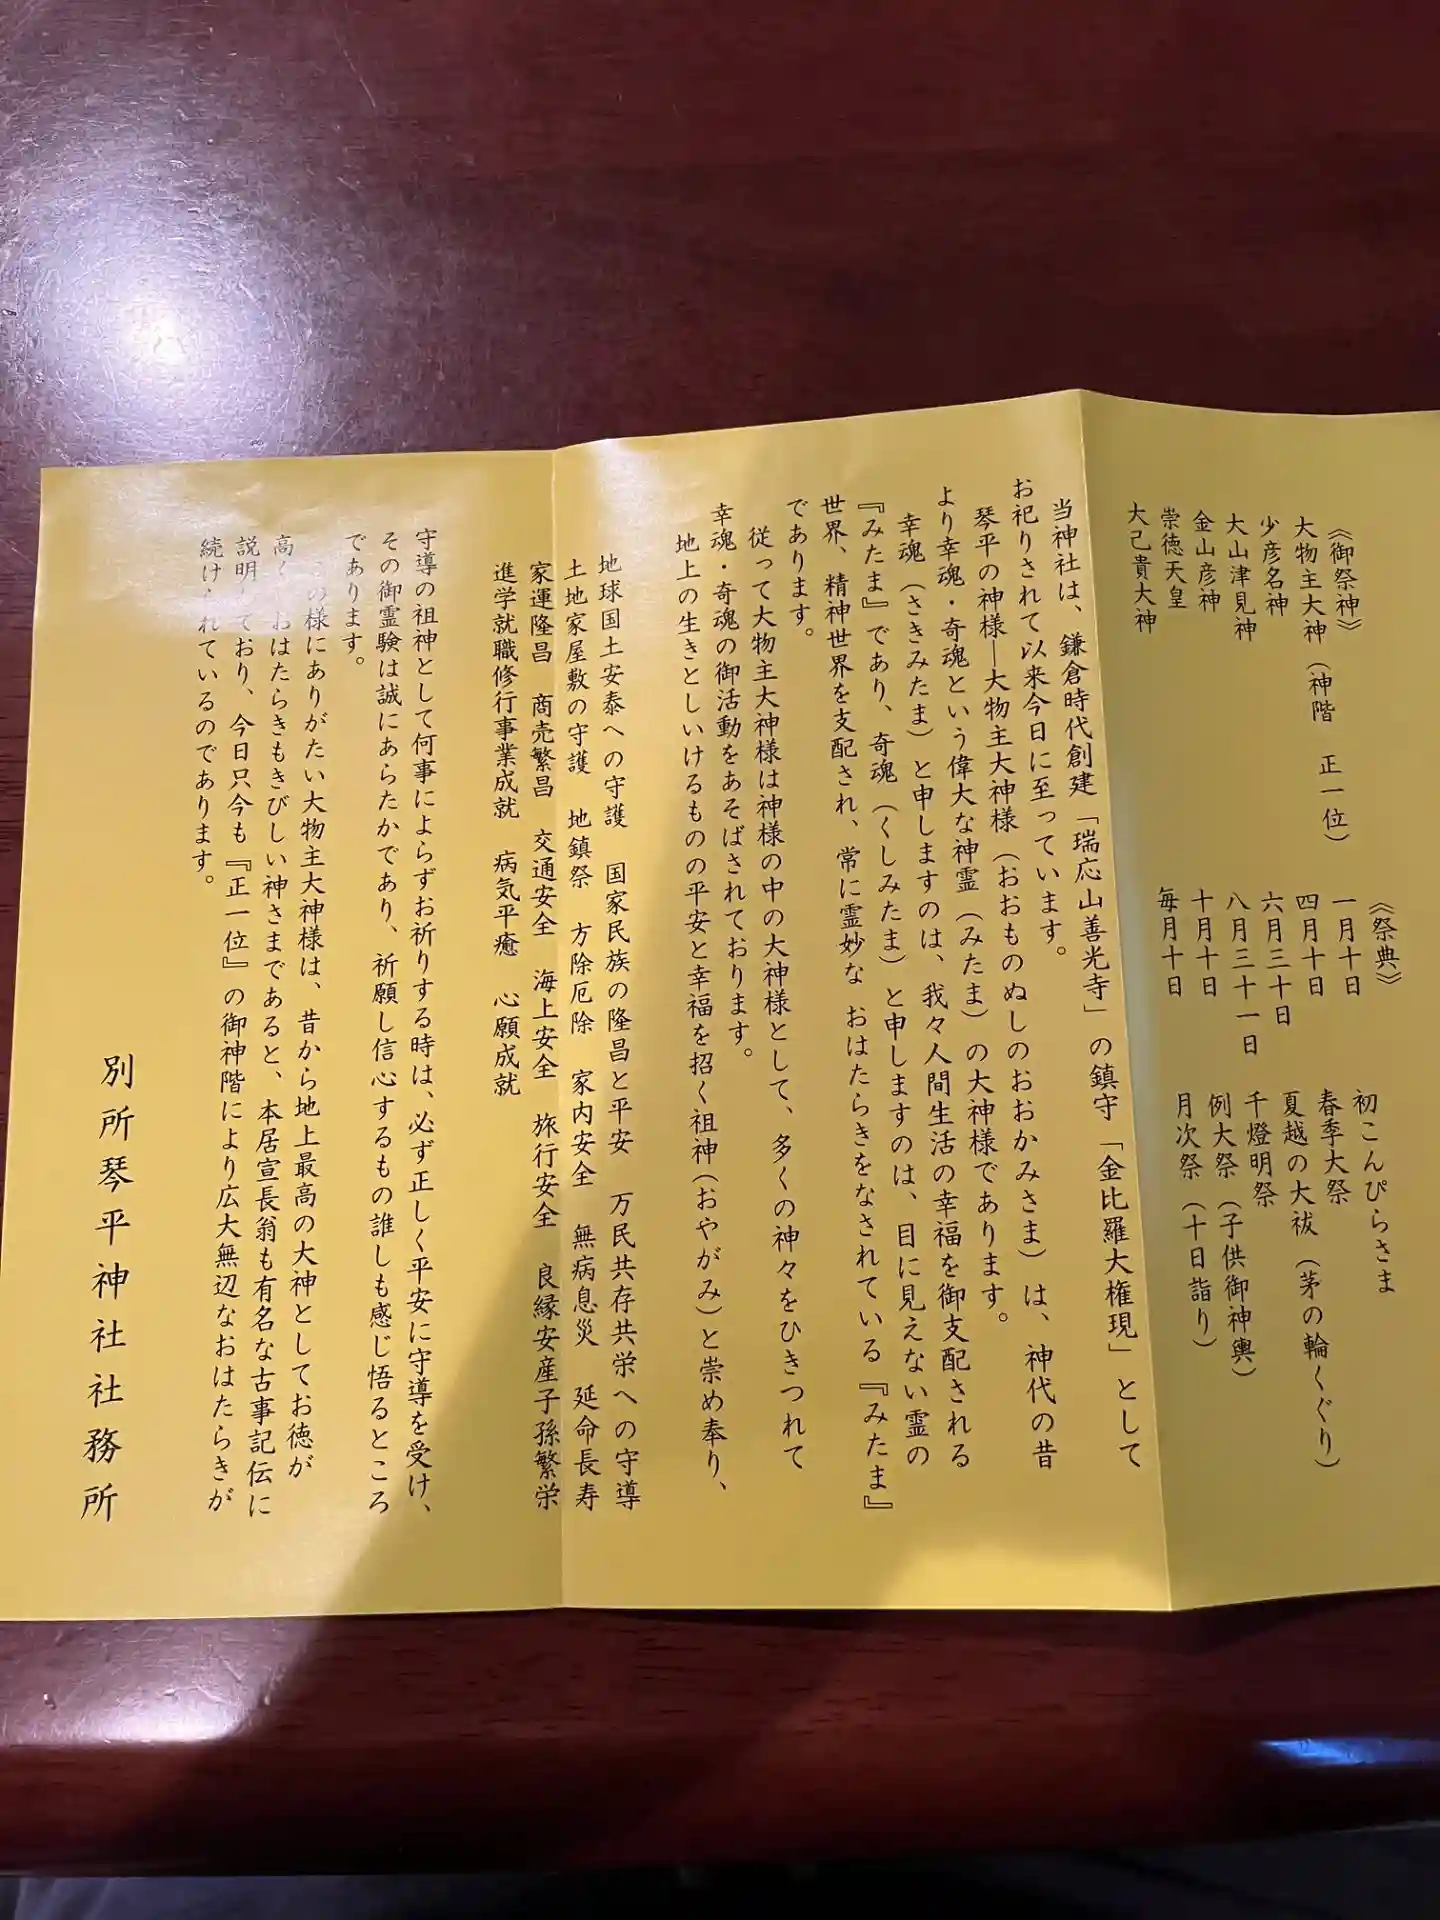 《御祭神》
大物主大神（神階　正一位）
少彦名神
大山津見神
金山彦神
崇徳天皇
大己貴大神
《祭典》
一月十日　初こんぴらさま
四月十日　春季大祭
六月三十日　夏越の大祓（茅の輪くぐり）
八月三十一日　千燈明祭
十月十日　例大祭（子供御神輿）
毎月十日　月次祭（十日詣り）
当神社は、鎌倉時代創建「瑞応山善光寺」の鎮守「金比羅大権現」として
お祀りされて以来今日に至っています。
琴平の神様―大物主大神様（おおものぬしのおおかみさま）は、神代の昔
より幸魂・奇魂という偉大な神霊（みたま）の大神様であります。
幸魂（さきみたま）と申しますのは、我々人間生活の幸福を御支配される
『みたま』であり、奇魂（くしみたま）と申しますのは、目に見えない霊の
世界、精神世界を支配され、常に霊妙な おはたらきをなされている『みたま』
であります。
従って大物主大神様は神様の中の大神様として、多くの神々をひきつれて
幸魂・奇魂の御活動をあそばされております。
地上の生きとしいけるものの平安と幸福を招く祖神（おやがみ）と崇め奉り、
地球国土安泰への守護　国家民族の隆昌と平安　万民共存共栄への守導
土地家屋敷の守護　地鎮祭　方除厄除　家内安全　無病息災　延命長寿
家運隆昌　商売繁昌　交通安全　海上安全　旅行安全　良縁安産子孫繁栄
進学就職修行事業成就　病気平癒　心願成就
守導の祖神として何事によらずお祈りする時は、必ず正しく平安に守導を受け、
その御霊験は誠にあらたかであり、祈願し信心するもの誰しも感じ悟るところ
であります。
の様にありがたい大物主大神様は、昔から地上最高の大神としてお徳が
高く おはたらきもきびしい神さまであると、本居宣長翁も有名な古事記伝に
説明 ており、今日只今も『正一位』の御神階により広大無辺なおはたらきが
続け れているのであります。
別所琴平神社社務所